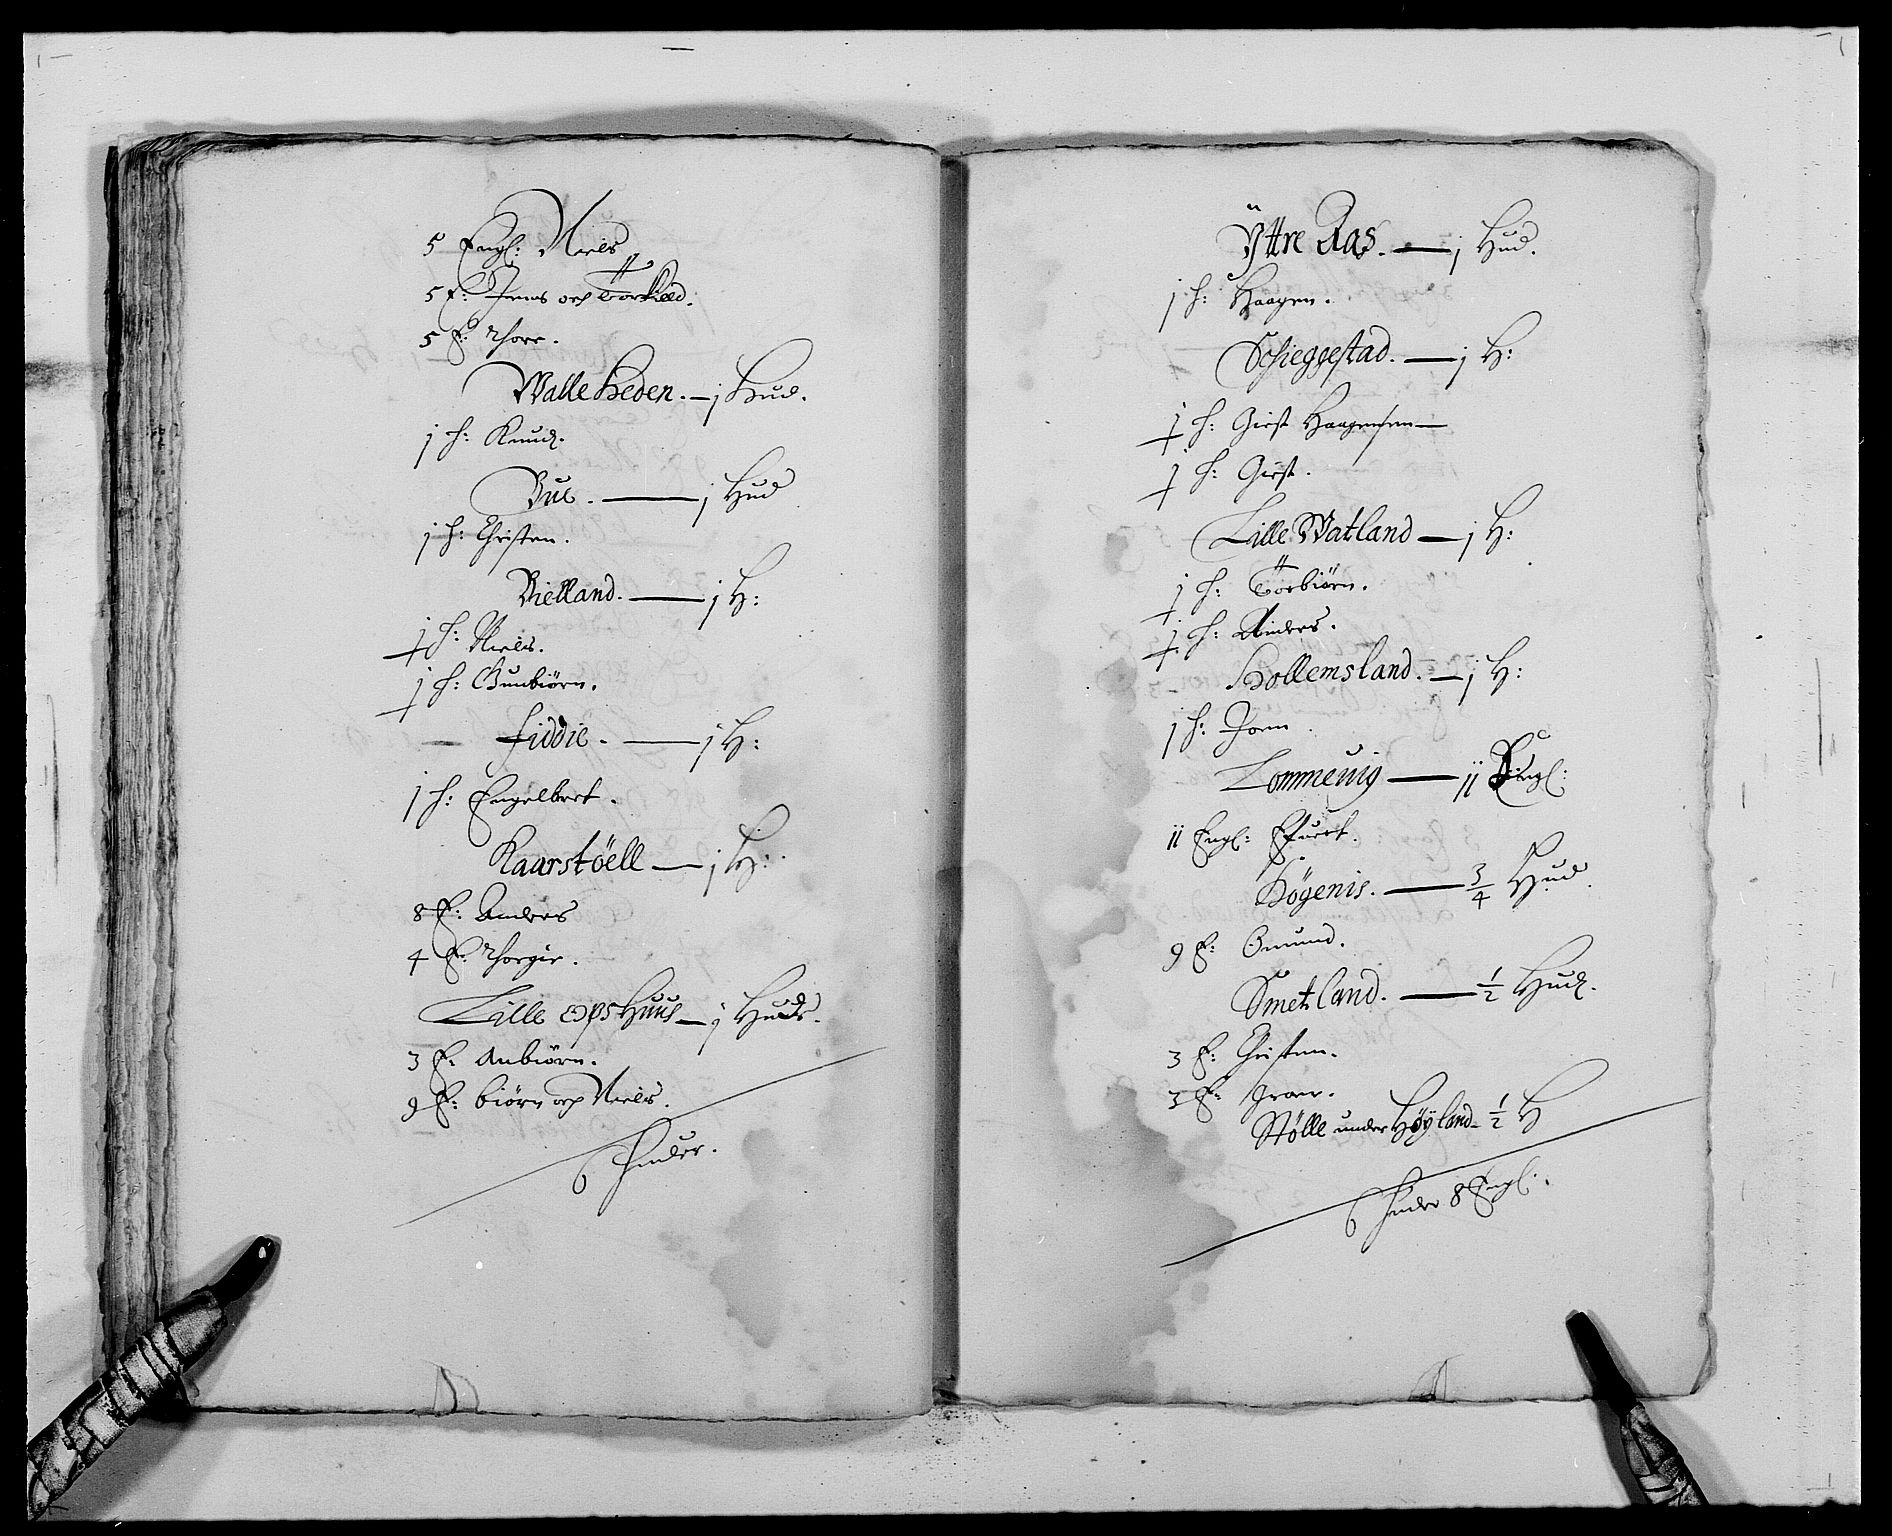 5 Engl: Niels
5 E: Jens och Torkild.
5 E: Thore.
Walle Heden. — j Hud.
j h: Knud.
Bue. — j Hud
j h: Christen.
Bielland. — j H:
j h: Niels.
j h: Gunbiörn.
Fiddie. — j H:
j h: Engelbert.
Kaarstöell — j H:
8 E: Anders
4 E: Thorgir.
Lille opsHuus — j Huds.
3 E: Anbiörn.
9 E: biörn och Niels.
6 Huder.
Ÿttre Aas. — j Hud.
j h: Haagen.
Schieggestad. — j H:
j h: Girst Haagensen —
j h: Girst.
Lille Watland — j H:
j h: Torbiörn.
j h: Anders.
Hollemsland. — j H:
j h: Joen.
Lommeuig — ij Engl:
ij Engl: Siuert.
Högenis. — 3/4 Hud.
9 E: Omund.
Smetland. — 1/2 Hud.
3 E: Christen.
3 E: Iver.
Stölle under Höÿland — 1/2 H
6 Huder 8 Engl:.